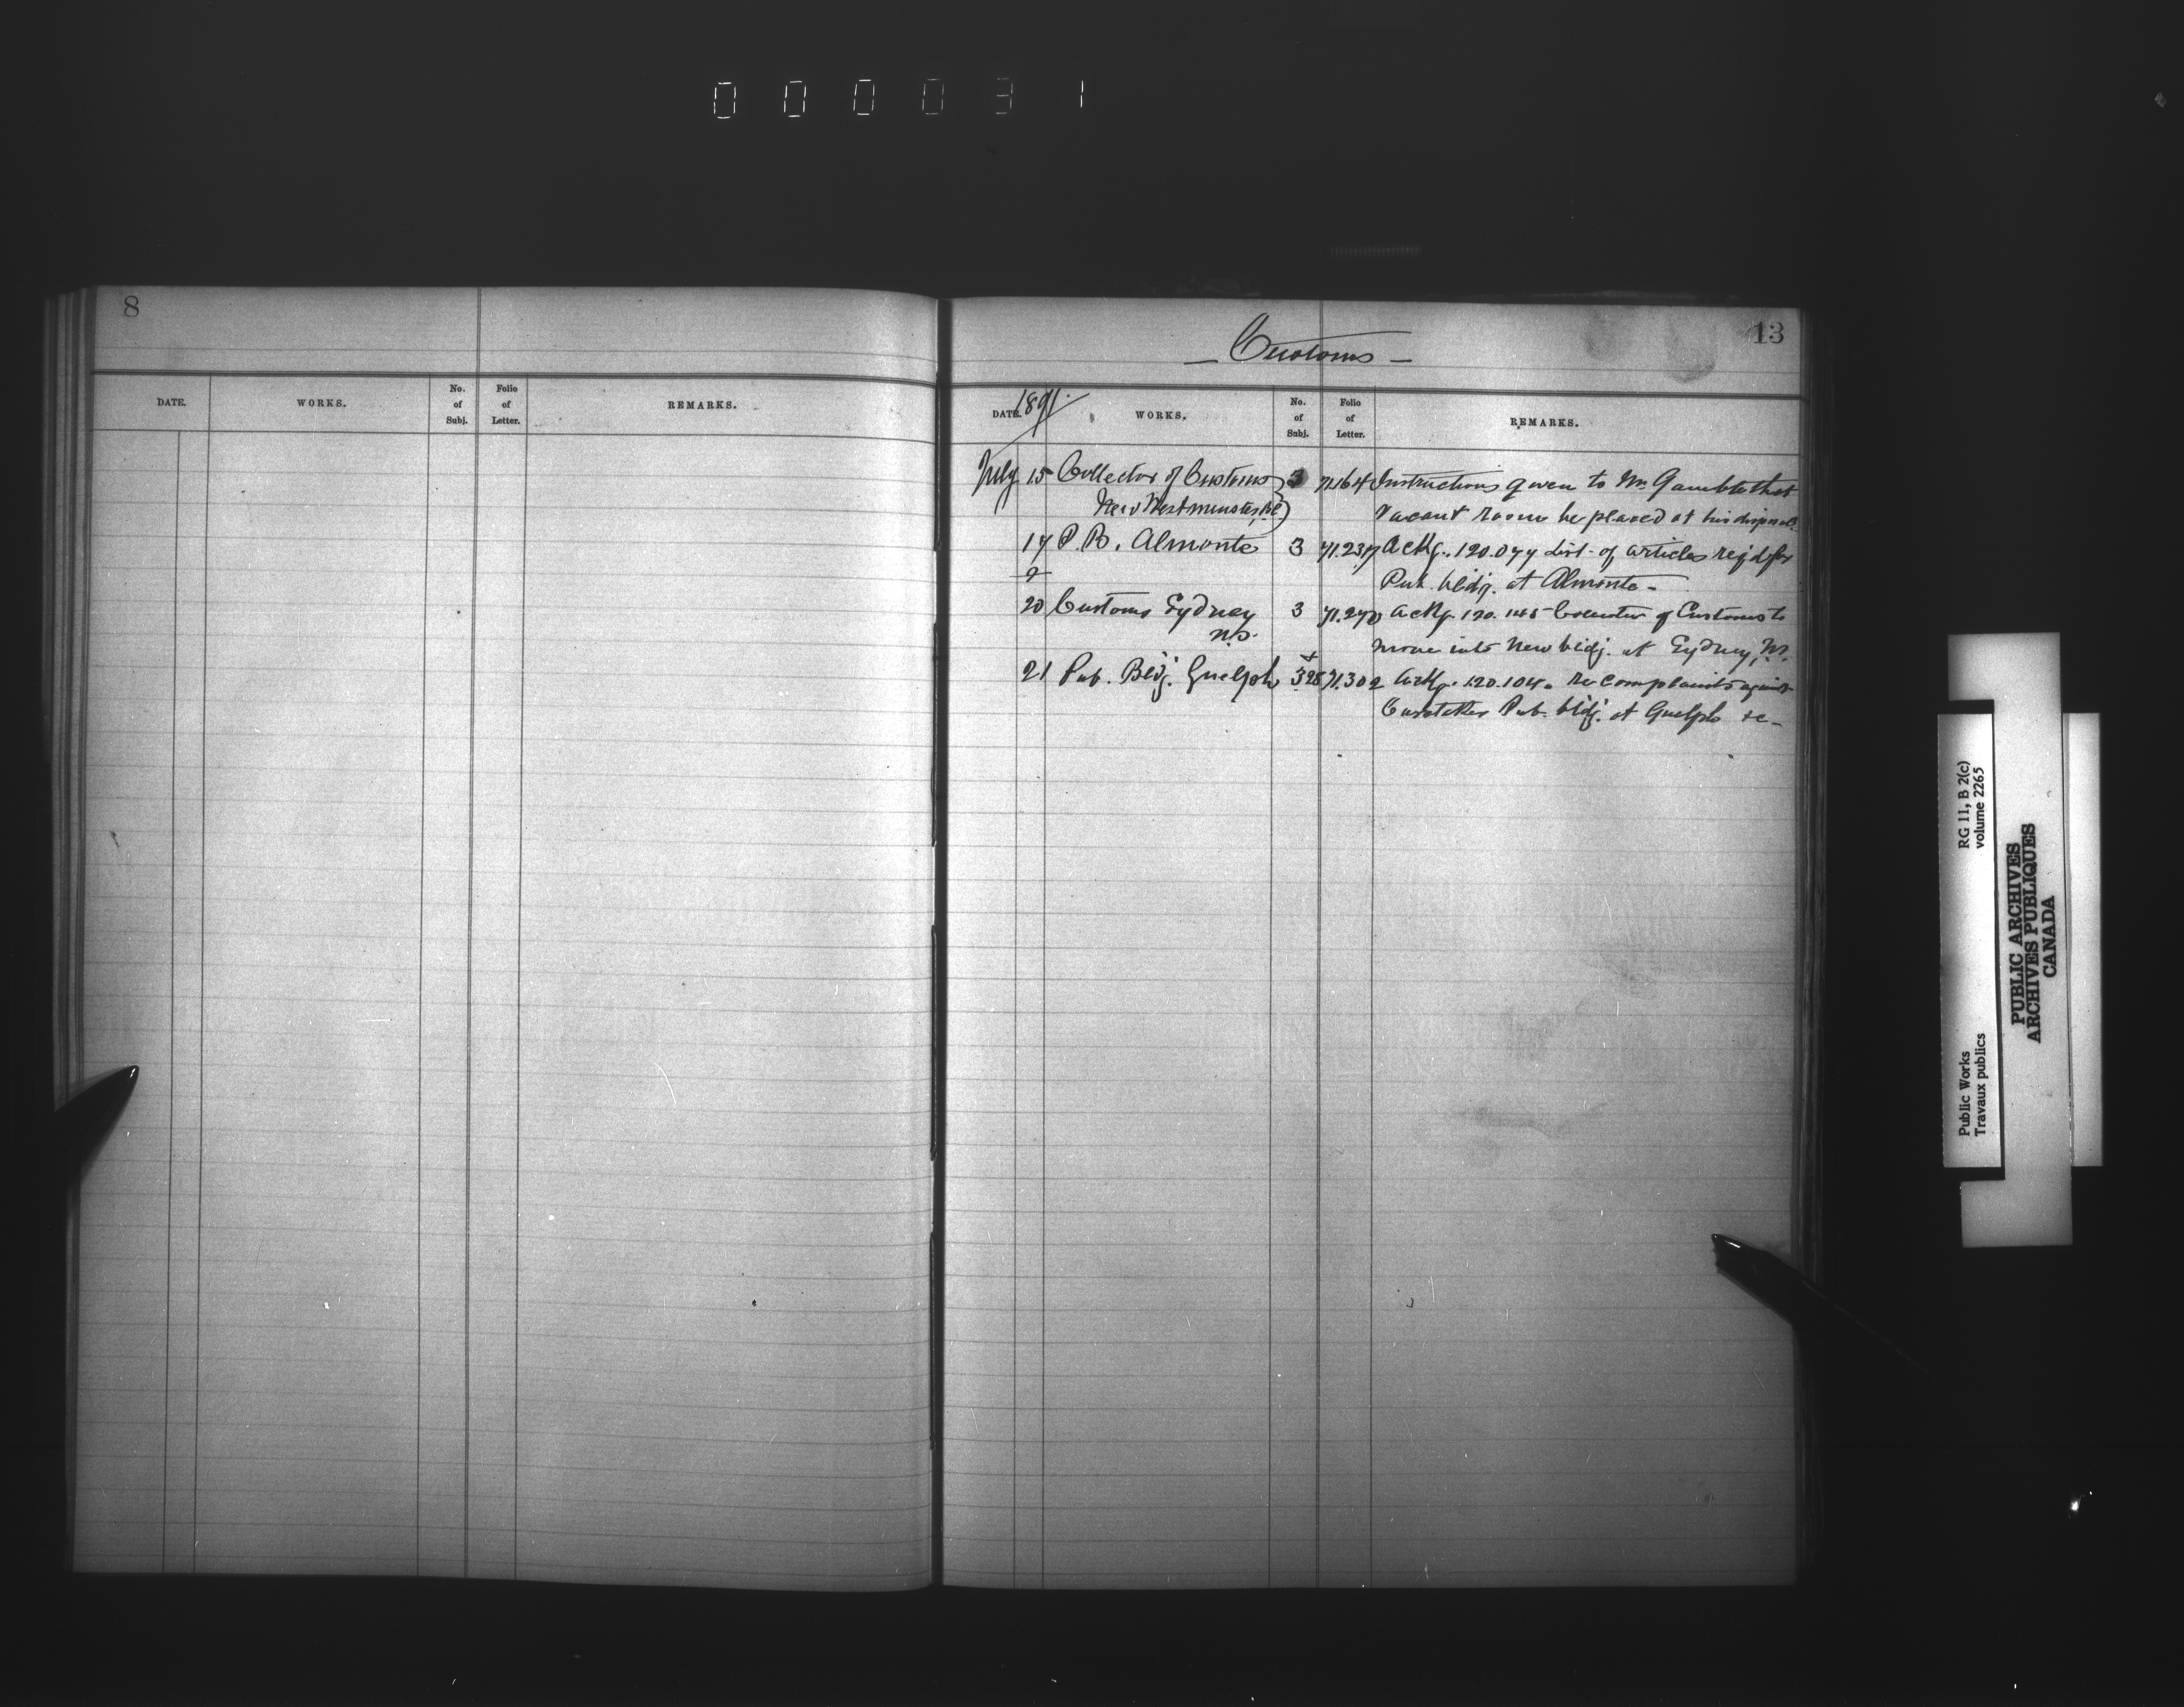 000031
8
DATE. WORKS. No. of Subj. Folio of Letter. REMARKS.
13
— Customs —
1891.
DATE. WORKS. No. of Subj. Folio of Letter. REMARKS.
July 15 Collector of Customs 3 71.164 Instructions given to Mr. Gamble that
New Westminster, B.C. Vacant room be placed at his disposal.
17 P. B. Almonte 3 71.237 Ackg. 120.077 List of articles req'd for
Pub. bldg. at Almonte —
20 Customs Sydney 3 71.270 Ackg. 120.145 Collector of Customs to
N.S. move into New bldg. at Sydney, N.S.
21 Pub. Bldg. Guelph 3 + 28 71.302 Ackg. 120.104. Re complaints against
Caretaker Pub. bldg. at Guelph &c —
Public Works RG 11, B 2(c)
Travaux publics volume 2265
PUBLIC ARCHIVES
ARCHIVES PUBLIQUES
CANADA